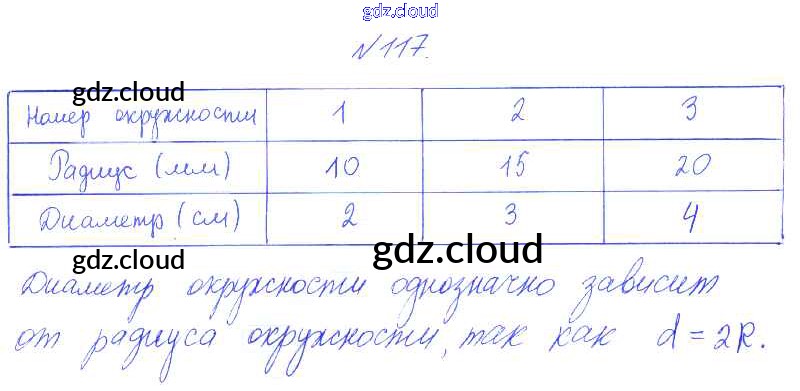 gdz.cloud
№117.
gdz.cloud gdz.cloud gdz.cloud
Номер окружности 1 2 3
Радиус (мм) 10 15 20
Диаметр (см) 2 3 4
gdz.cloud gdz.cloud
Диаметр окружности однозначно зависит
от радиуса окружности, так как d = 2R.
gdz.cloud gdz.cloud